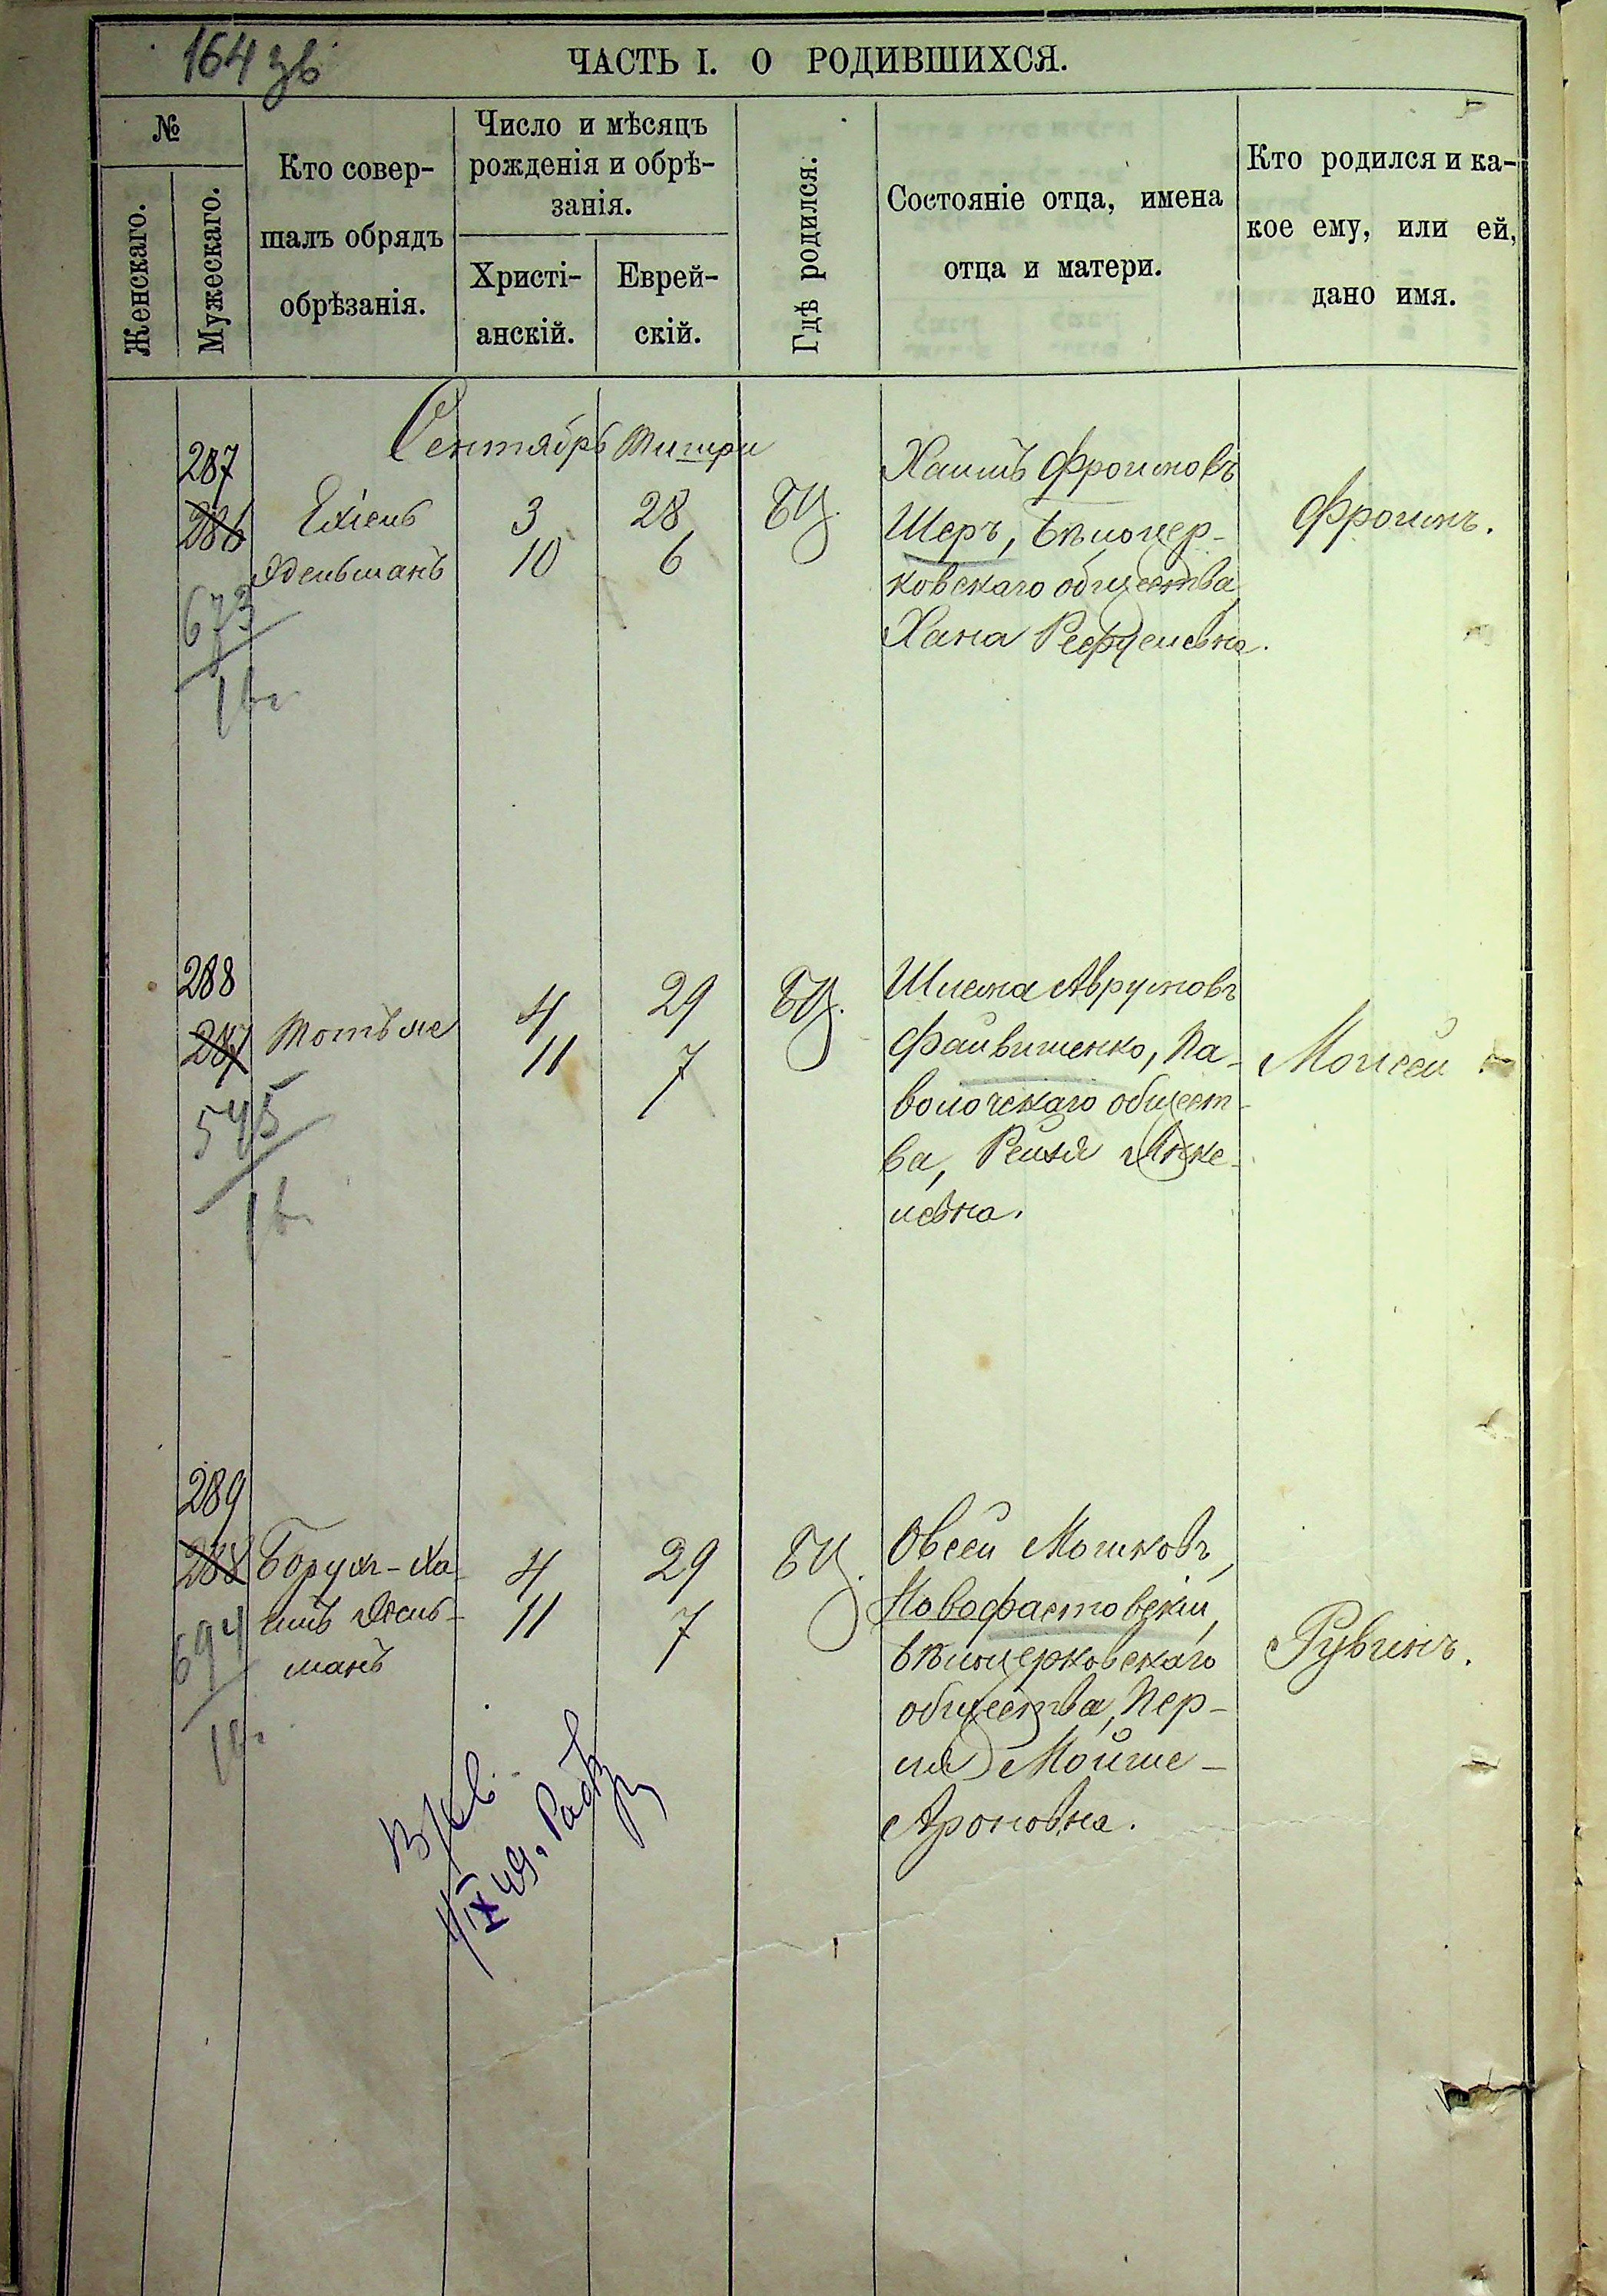 164 зв
ЧАСТЬ I. О РОДИВШИХСЯ.
№
Женскаго.
Мужескаго.
Кто совер-
шалъ обрядъ
обрѣзанія.
Число и мѣсяцъ
рожденія и обрѣ-
занія.
Христі-
анскій.
Еврей-
скій.
Гдѣ родился.
Состояніе отца, имена
отца и матери.
Кто родился и ка-
кое ему, или ей,
дано имя.
Сентябрь Тишри
287
286
673
Ехіель
Эдельманъ
3
10
28
6
БЦ.
Хаимъ Фроимовъ
Шеръ, Бѣлоцер-
ковскаго общества
Хана Рефулевна.
Фроимъ.
288
287
545
Мотьле
4
11
29
7
БЦ.
Шлема Аврумовъ
Файвишенко, Па-
волочскаго общест-
ва, Рейзя Янке-
левна.
Мойсей
289
288
694
Борухъ-Ха-
имъ Эдель-
манъ
4
11
29
7
БЦ.
Овсей Мошковъ,
Новофастовскій,
Бѣлоцерковскаго
общества, Пер-
ля Мойше-
Ароновна.
Рувинъ.
IX 49.